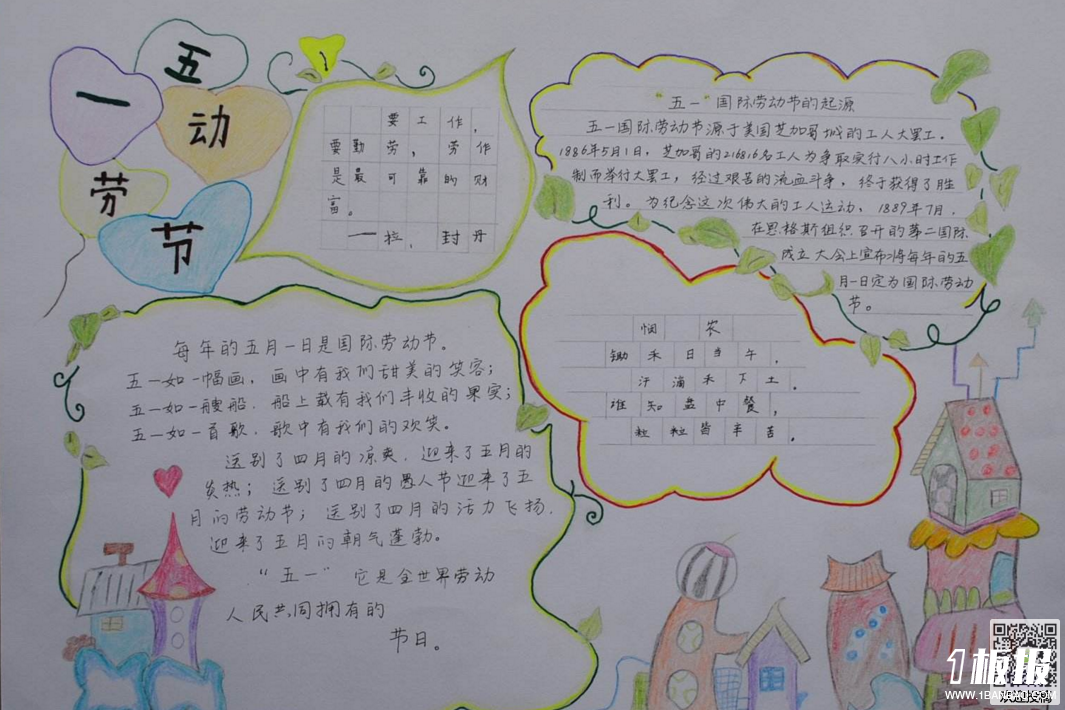 五
一
动
劳
节
要工作，
要勤劳，劳作
是最可靠的财
富。
——拉，封丹
“五一“国际劳动节的起源
五一国际劳动节源于美国芝加哥城的工人大罢工.
1886年5月1日，芝加哥的216816名工人为争取实行八小时工作
制而举行大罢工，经过艰苦的流血斗争，终于获得了胜
利。为纪念这次伟大的工人运动、1889年7月，
在恩格斯组织召开的第二国际
成立大会上宣布将每年的五
月一日定为国际劳动
节。
悯农
锄禾日当午，
汗滴禾下土。
谁知盘中餐，
粒粒皆辛苦。
每年的五月一日是国际劳动节。
五一如一幅画，画中有我们甜美的笑容；
五一如一艘船．船上载有我们丰收的果实；
五一如一首歌．歌中有我们的欢笑。
送别了四月的凉爽．迎来了五月的
炎热；送别了四月的愚人节迎来了五
月的劳动节；送别了四月的活力飞扬．
迎来了五月的朝气蓬勃。
“五一”它是全世界劳动
人民共同拥有的
节日。
1板报
WWW.1BANBAO.COM
欢迎投稿